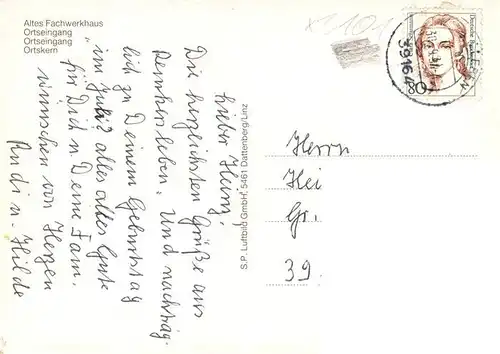 Altes Fachwerkhaus
Ortseingang
Ortseingang
Ortskern
101
Deutsche Bundespost
80
39164
lieber Heinz,
Die herzlichsten Grüße aus
Remkersleben. Und nachträg-
lich zu Deinem Geburtstag
"im Juli" alles alles Gute
für Dich u. Deine Fam.
wünschen von Herzen
Rudi u. Hilde
S.P. Luftbild GmbH, 5461 Dattenberg/Linz
Herrn
Hei
Gr.
39.